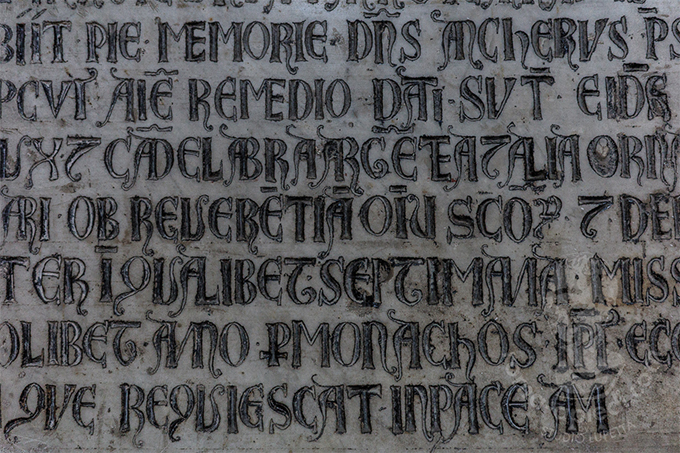 BIIT PIE MEMORIE DÑS ACHERVS PS
PCVI AĪE REMEDIO DATI SVT̄ EIDĒ
VXT CĀDELABRA ARGĒTEA ⁊ ALIA ORN
ARI OB REVERĒTIĀ OĪV SCO℞ ⁊ DE
TER Ī QVALIBET SEPTIMANA MISS
OLIBET ANNO P MONACHOS IP̄I ECC
QVE REQVIESCAT IN PACE AM̄